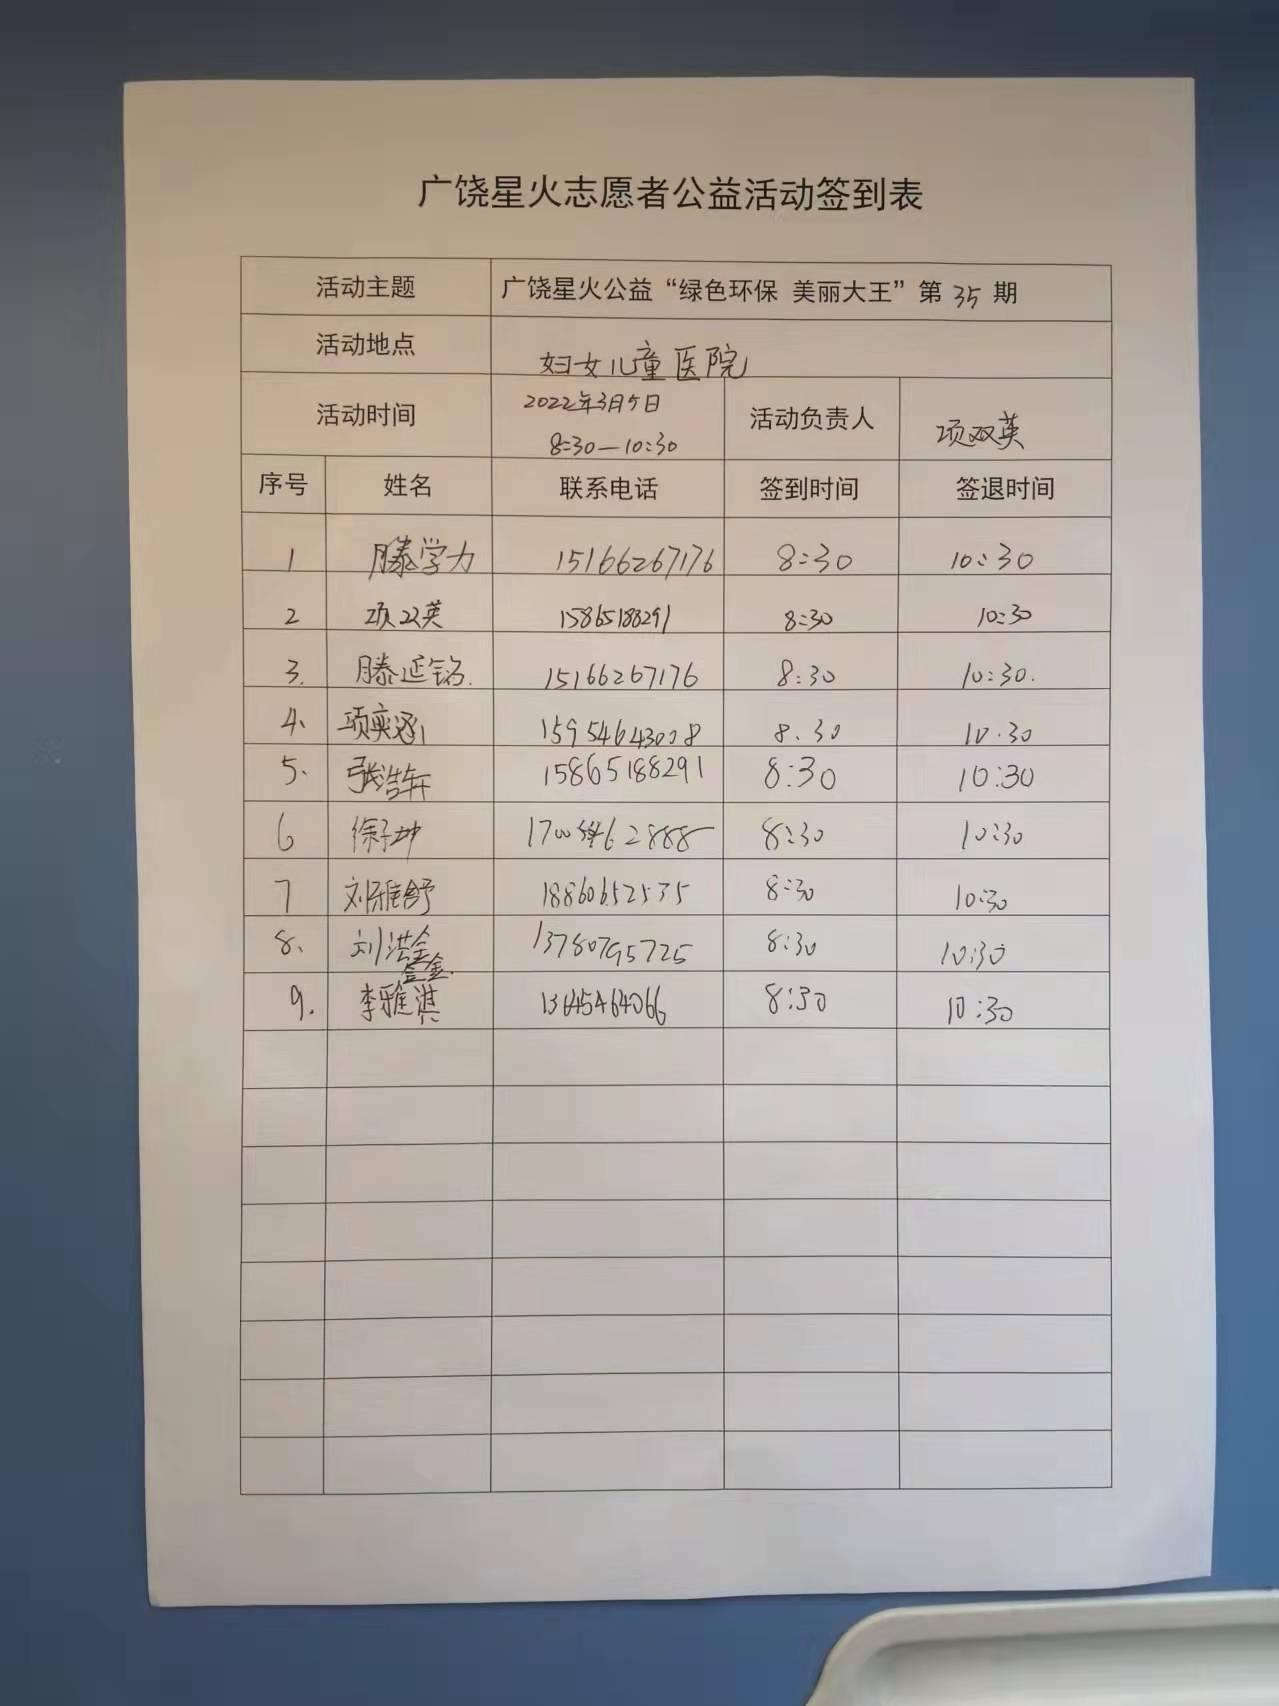 广饶星火志愿者公益活动签到表
活动主题 广饶星火公益“绿色环保 美丽大王”第 35 期
活动地点 妇女儿童医院
活动时间 2022年3月5日 8:30—10:30 活动负责人 项双英
序号 姓名 联系电话 签到时间 签退时间
1 滕学力 15166267176 8:30 10:30
2 项双英 15865188291 8:30 10:30
3. 滕延铭. 15166267176 8:30 10:30.
4、 项奕涵 15954643008 8.30 10.30
5、 张浩轩 15865188291 8:30 10:30
6 徐子坤 8:30 10:30
7 刘雅舒 18860652535 8:30 10:30
8、 刘洪鑫 13780795725 8:30 10:30
9. 李雅淇 13645464066 8:30 10:30